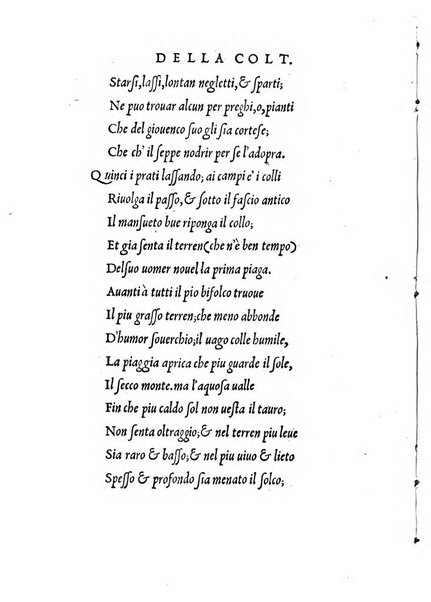 DELLA COLT.
Starſi,laſſi,lontan negletti,& ſparti;
Ne puo trouar alcun per preghi,o,pianti
Che del giouenco ſuo gli ſia corteſe;
Che ch' il ſeppe nodrir per ſe l'adopra.
Quinci i prati laſſando; ai campi e' i colli
Riuolga il paſſo, & ſotto il faſcio antico
Il manſueto bue riponga il collo;
Et gia ſenta il terren(che n'è ben tempo)
Delſuo uomer nouel la prima piaga.
Auanti à tutti il pio bifolco truoue
Il piu graſſo terren;che meno abbonde
D'humor ſouerchio;il uago colle humile,
La piaggia aprica che piu guarde il ſole,
Il ſecco monte.ma l'aquoſa ualle
Fin che piu caldo ſol non ueſta il tauro;
Non ſenta oltraggio;& nel terren piu leue
Sia raro & baſſo;& nel piu uiuo & lieto
Speſſo & profondo ſia menato il ſolco;